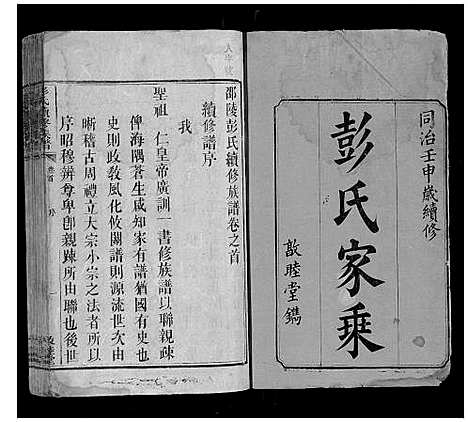 同治壬申歲續修
彭氏家乘
敦睦堂鐫
邵陵彭氏續修族譜卷之首
續修譜序
我
聖祖仁皇帝廣訓一書修族譜以聯親疎
俾海隅蒼生咸知家有譜猶國有史也
史則政敎風化攸關譜則源流世次由
晰稽古周禮立大宗小宗之法者所以
序昭穆辨尊卑卽親疎所由聯也後世